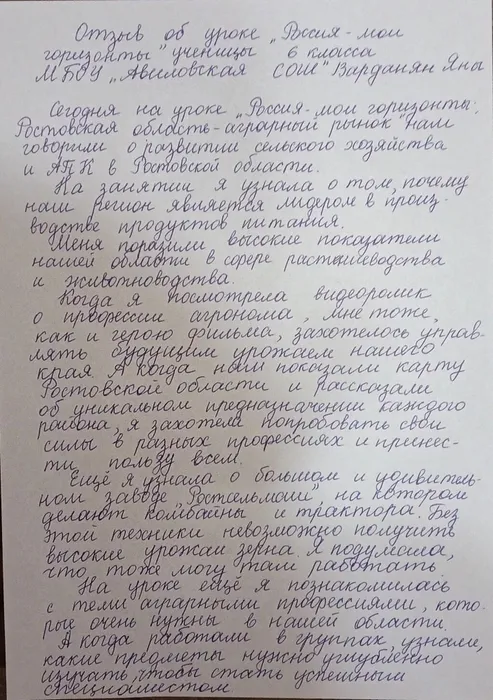 Отзыв об уроке „Россия - мои
горизонты" ученицы 6 класса
МБОУ „Авиловская СОШ" Варданян Яны
Сегодня на уроке „Россия - мои горизонты:
Ростовская область - аграрный рынок" нам
говорили о развитии сельского хозяйства
и АПК в Ростовской области.
На занятии я узнала о том, почему
наш регион является лидером в произ-
водстве продуктов питания.
Меня поразили высокие показатели
нашей области в сфере растениеводства
и животноводства.
Когда я посмотрела видеоролик
о профессии агронома, мне тоже,
как и герою фильма, захотелось управ-
лять будущим урожаем нашего
края. А когда нам показали карту
Ростовской области и рассказали
об уникальном предназначении каждого
района, я захотела попробовать свои
силы в разных профессиях и принес-
ти пользу всем.
Ещё я узнала о большом и удивитель-
ном заводе „Ростсельмаш", на котором
делают комбайны и трактора. Без
этой техники невозможно получить
высокие урожаи зерна. Я подумала,
что тоже могу там работать.
На уроке ещё я познакомилась
с теми аграрными профессиями, кото-
рые очень нужны в нашей области.
А когда работали в группах, узнали,
какие предметы нужно углубленно
изучать, чтобы стать успешным
специалистом.